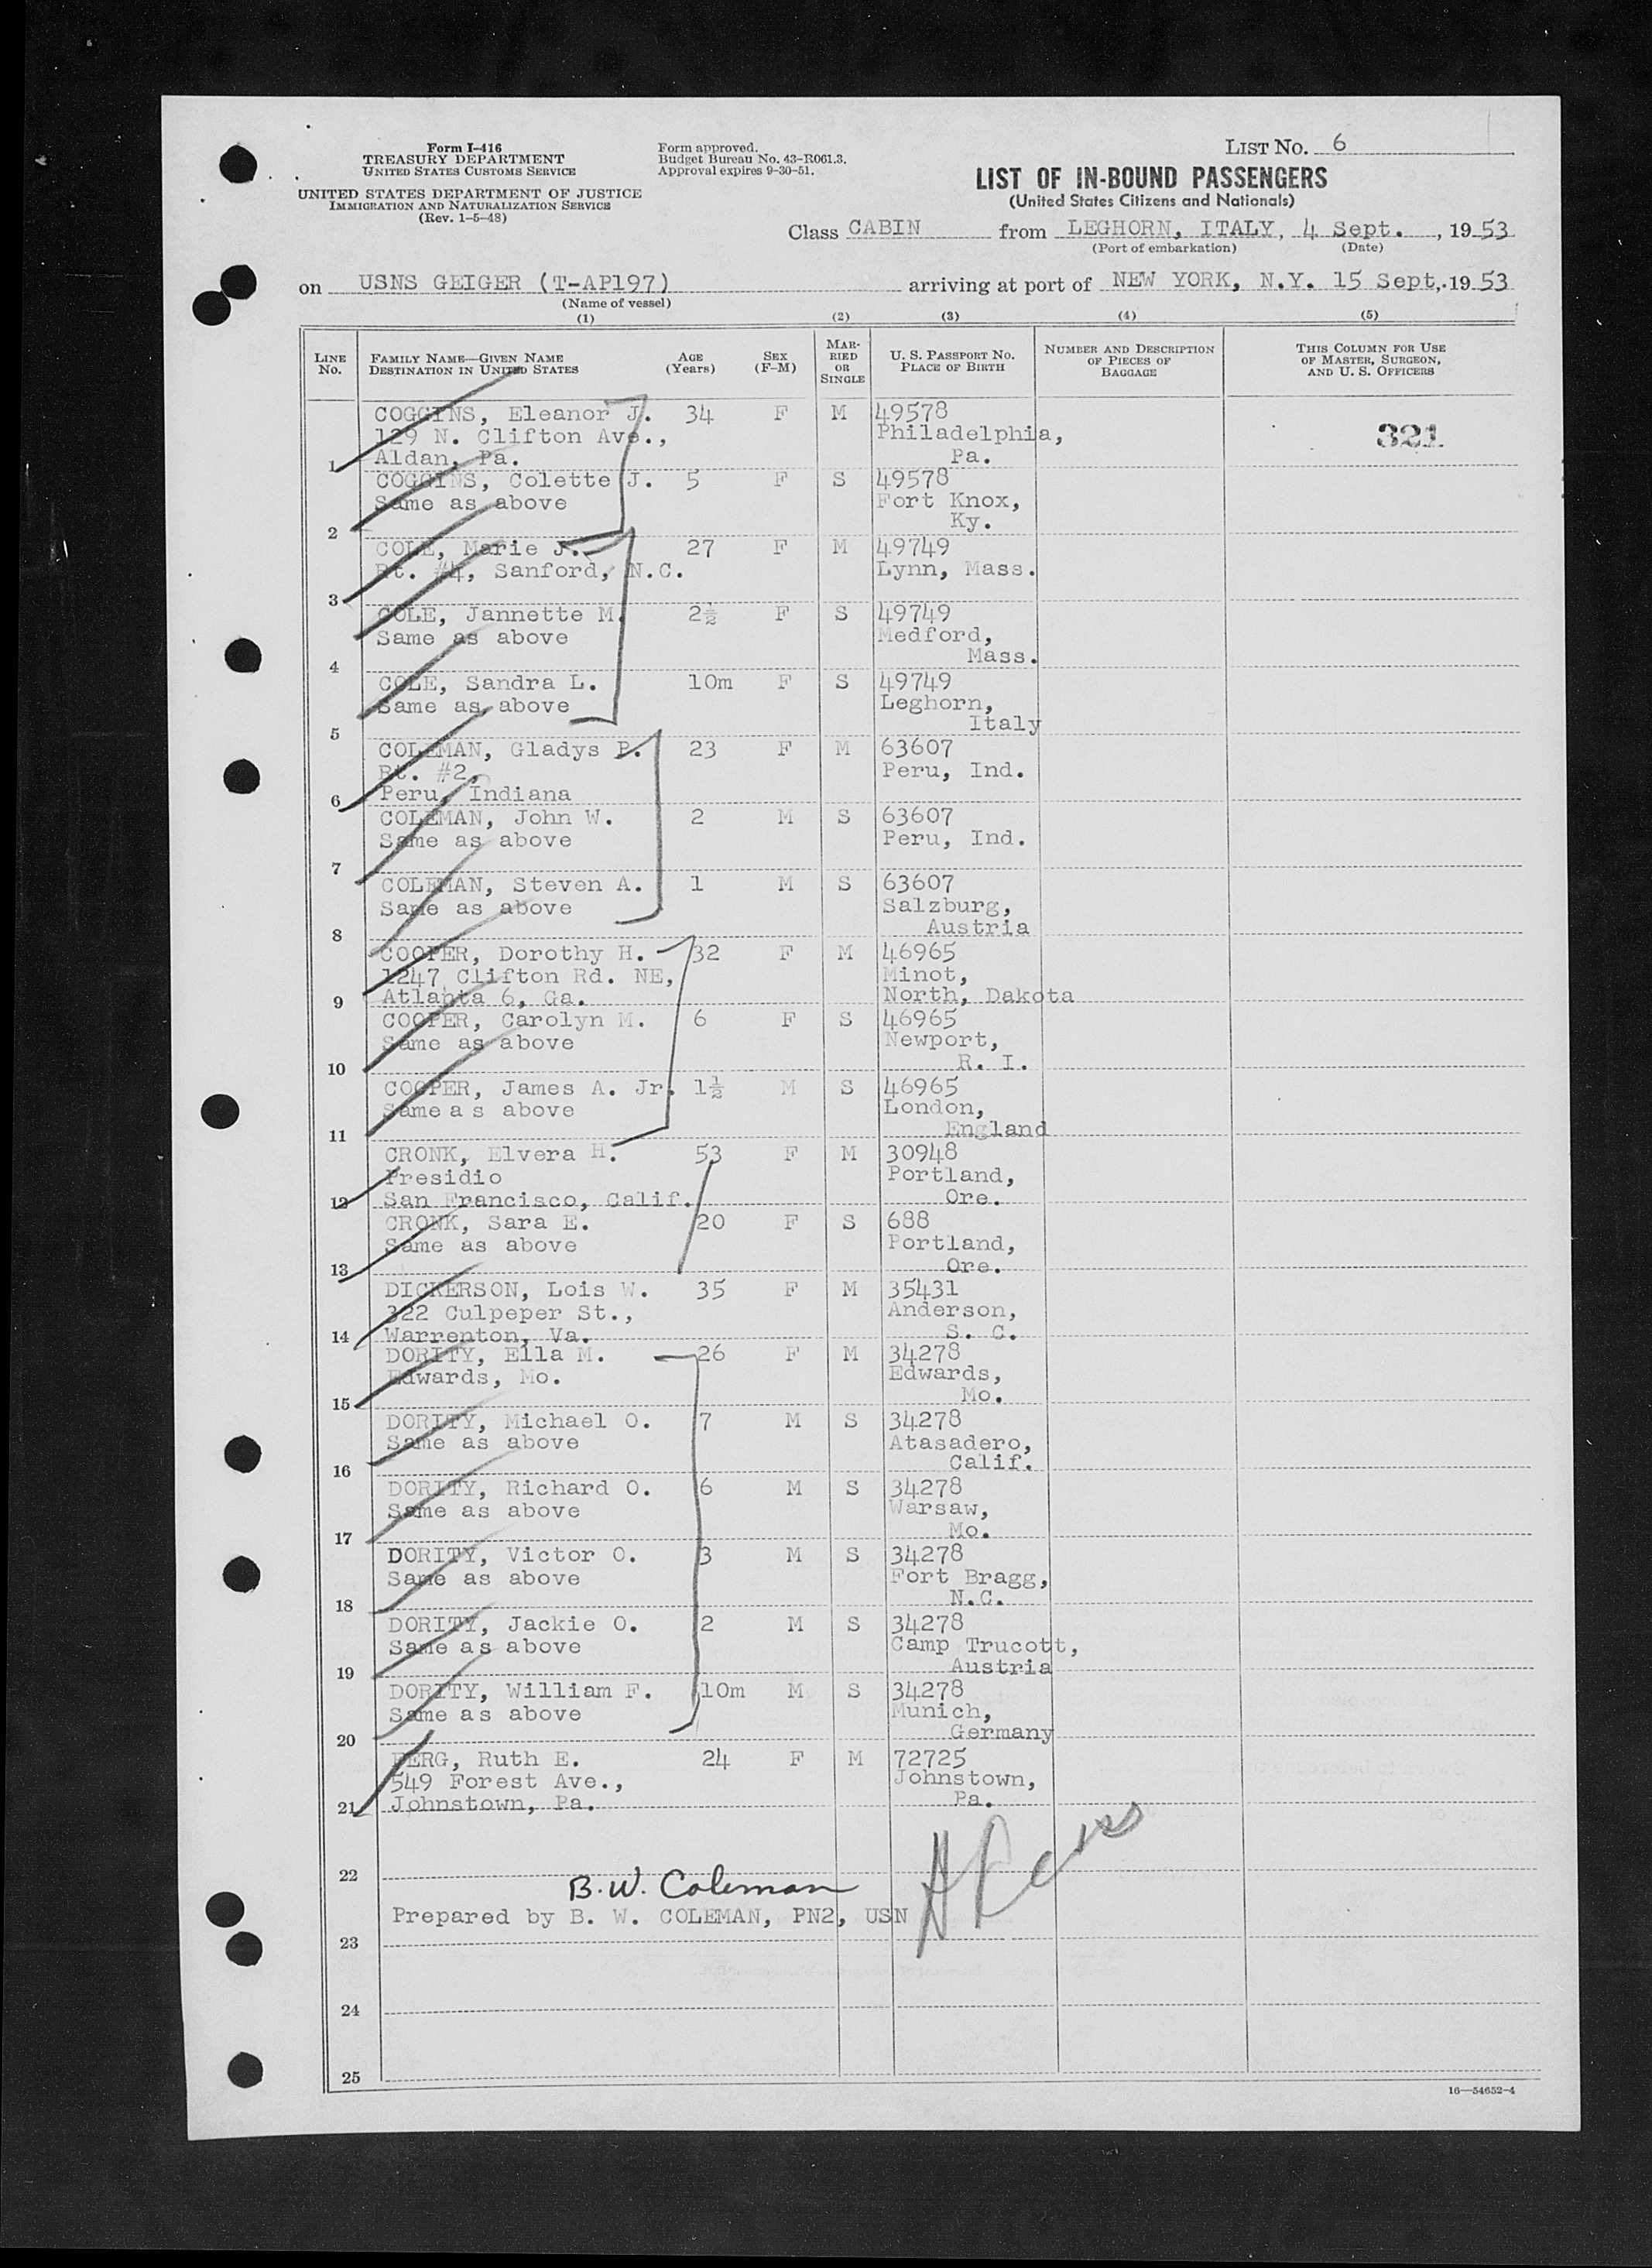 Form I-416
TREASURY DEPARTMENT
UNITED STATES CUSTOMS SERVICE
UNITED STATES DEPARTMENT OF JUSTICE
IMMIGRATION AND NATURALIZATION SERVICE
(Rev. 1-5-48)
Form approved.
Budget Bureau No. 43-R061.3.
Approval expires 9-30-51.
LIST No. 6
LIST OF IN-BOUND PASSENGERS
(United States Citizens and Nationals)
Class CABIN from LEGHORN, ITALY, 4 Sept. , 1953
(Port of embarkation) (Date)
on USNS GEIGER (T-AP197) arriving at port of NEW YORK, N.Y. 15 Sept, 1953
(Name of vessel)
(1) (2) (3) (4) (5)
LINE No. FAMILY NAME—GIVEN NAME DESTINATION IN UNITED STATES AGE (Years) SEX (F-M) MARRIED OR SINGLE U. S. PASSPORT No. PLACE OF BIRTH NUMBER AND DESCRIPTION OF PIECES OF BAGGAGE THIS COLUMN FOR USE OF MASTER, SURGEON, AND U. S. OFFICERS
COGGINS, Eleanor J. 34 F M 49578
129 N. Clifton Ave., Philadelphia, 321
1 Aldan, Pa. Pa.
COGGINS, Colette J. 5 F S 49578
Same as above Fort Knox,
2 Ky.
COLE, Marie J. 27 F M 49749
Rt. #4, Sanford, N.C. Lynn, Mass.
3
COLE, Jannette M. 2½ F S 49749
Same as above Medford,
4 Mass.
COLE, Sandra L. 10m F S 49749
Same as above Leghorn,
5 Italy
COLEMAN, Gladys P. 23 F M 63607
Rt. #2, Peru, Ind.
6 Peru, Indiana
COLEMAN, John W. 2 M S 63607
Same as above Peru, Ind.
7
COLEMAN, Steven A. 1 M S 63607
Same as above Salzburg,
8 Austria
COOPER, Dorothy H. 32 F M 46965
1247 Clifton Rd. NE, Minot,
9 Atlanta 6, Ga. North, Dakota
COOPER, Carolyn M. 6 F S 46965
Same as above Newport,
10 R. I.
COOPER, James A. Jr. 1½ M S 46965
Same as above London,
11 England
CRONK, Elvera H. 53 F M 30948
Presidio Portland,
12 San Francisco, Calif. Ore.
CRONK, Sara E. 20 F S 688
Same as above Portland,
13 Ore.
DICKERSON, Lois W. 35 F M 35431
322 Culpeper St., Anderson,
14 Warrenton, Va. S. C.
DORITY, Ella M. 26 F M 34278
Edwards, Mo. Edwards,
15 Mo.
DORITY, Michael O. 7 M S 34278
Same as above Atasadero,
16 Calif.
DORITY, Richard O. 6 M S 34278
Same as above Warsaw,
17 Mo.
DORITY, Victor O. 3 M S 34278
Same as above Fort Bragg,
18 N.C.
DORITY, Jackie O. 2 M S 34278
Same as above Camp Trucott,
19 Austria
DORITY, William F. 10m M S 34278
Same as above Munich,
20 Germany
BERG, Ruth E. 24 F M 72725
549 Forest Ave., Johnstown,
21 Johnstown, Pa. Pa.
22
B. W. Coleman
Prepared by B. W. COLEMAN, PN2, USN
23
24
25
16—54652-4